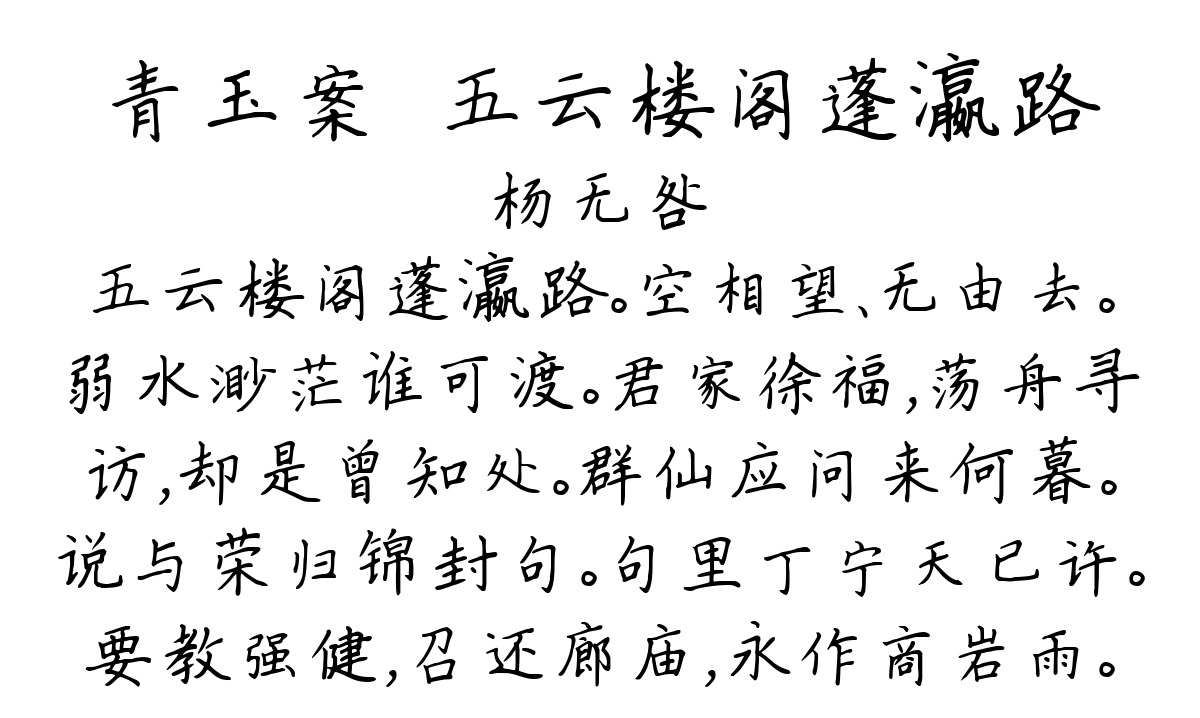 青玉案 五云楼阁蓬瀛路
杨无咎
五云楼阁蓬瀛路。空相望、无由去。
弱水渺茫谁可渡。君家徐福,荡舟寻
访,却是曾知处。群仙应问来何暮。
说与荣归锦封句。句里丁宁天已许。
要教强健,召还廊庙,永作商岩雨。